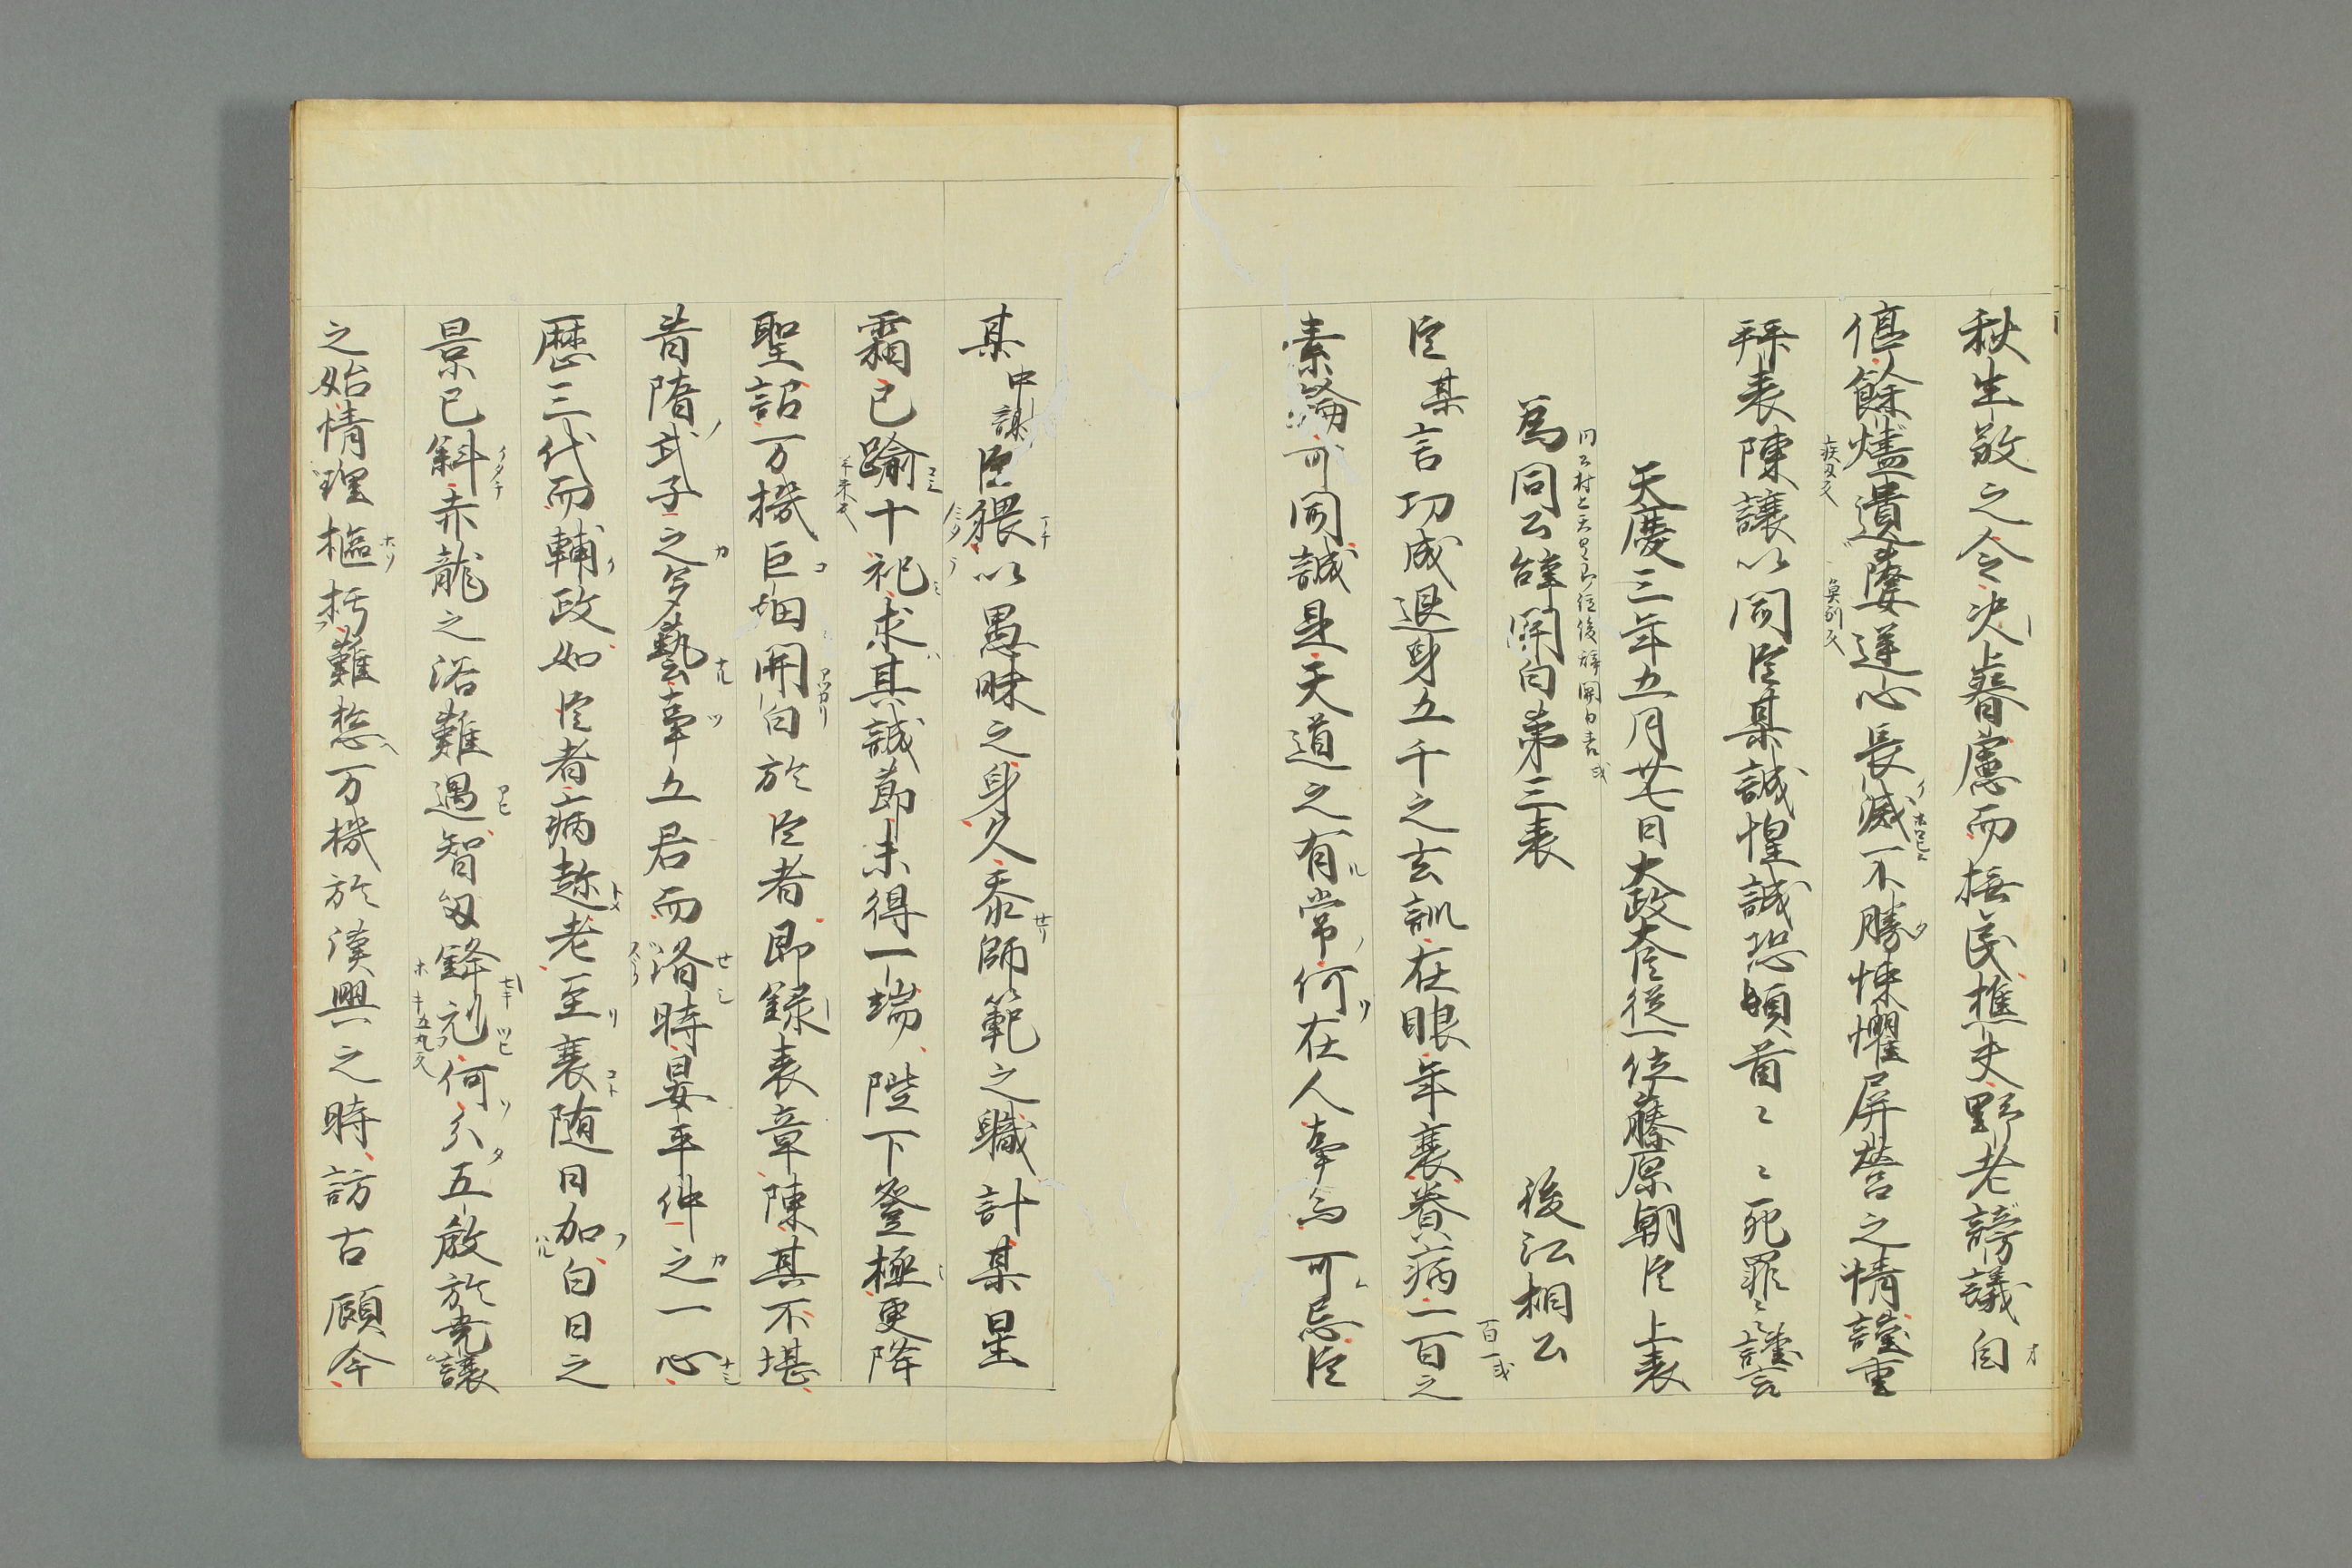 秋生敬之令决眷慮而撫民樵夫野老謗議自
停餘燼遺孽逆心長滅不勝悚懼屏營之情謹重
拜表陳讓以聞臣某誠惶誠恐頓首〻〻死罪〻〻謹言
天慶三年五月廿七日太政大臣從一位藤原朝臣上表
為同公辞關白第三表 後江相公
臣某言功成退身五千之玄訓在眼年衰養病一百之
素論可同誠是天道之有常何在人事而可忘臣
某中謝臣猥以愚昧之身久忝師範之職計某星
霜已踰十祀求其誠節未得一端陛下登極更降
聖詔万機巨細開白於臣者即録表章陳其不堪
昔隋武子之多藝事五君而洛時晏平仲之一心
歴三代而輔政如臣者病趂老至衰随日加白日之
景已斜赤龍之浴難遇智刄鋒刓何分五殽於堯讓
之始情理樞折難惣万機於漢興之時訪古顧今